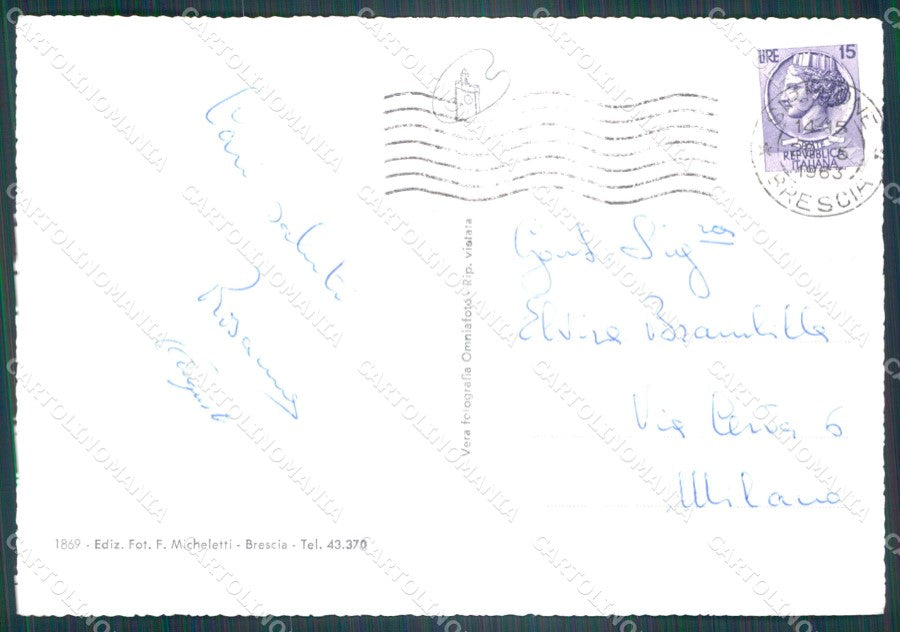 LIRE 15
14-15
1963
BRESCIA
POSTE
REPVBBLICA
ITALIANA
Cari
saluti
Rosanna
Gent Sig.ra
Elvira Brambilla
Via Cerva 6
Milano
Vera fotografia Omniafoto - Rip. vietata
1869 - Ediz. Fot. F. Micheletti - Brescia - Tel. 43.370
CARTOLINOMANIA